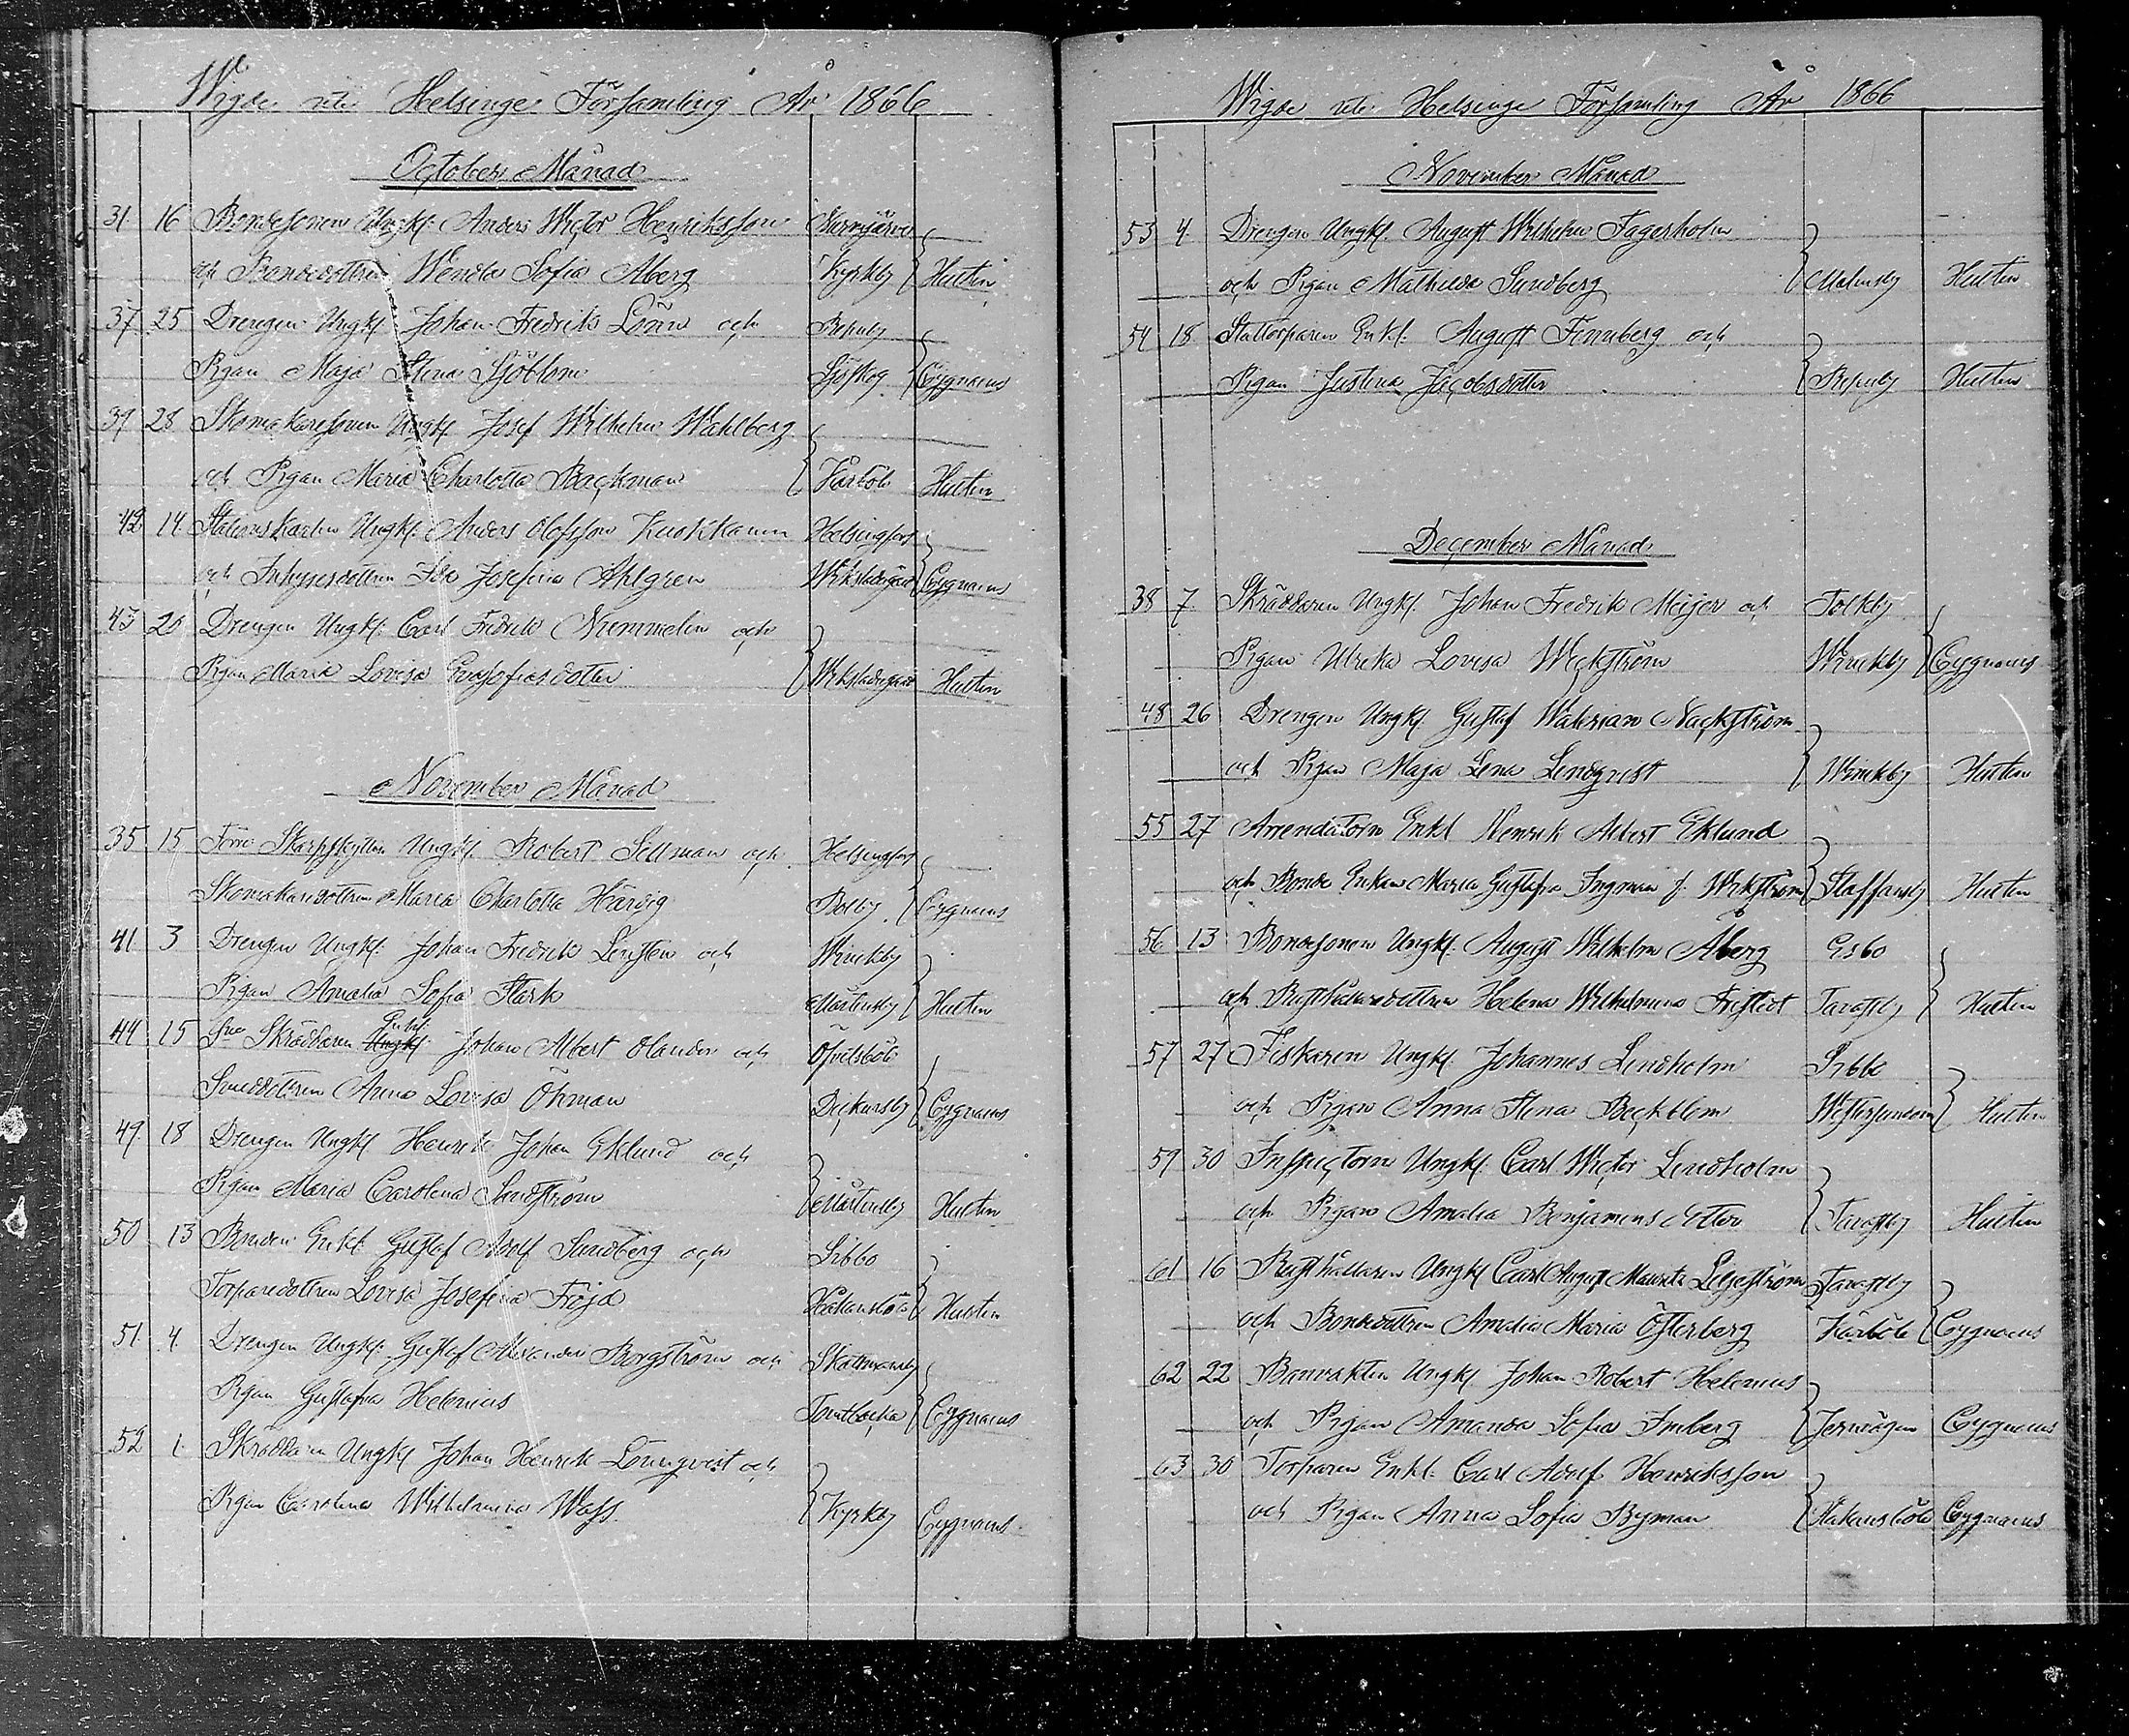 Wigde uti Helsinge Församling År 1866
October Månad
31. 16 Bondesonen Ungkl. Anders Wictor Henriksson Nurmjärvi
och Bondedottren Wendla Sofia Åberg Kyrkby Hultin
37 25 Drengen Ungkl Johan Fredrik Lönn och Reputy
Pigan Maja Stina Sjöblom Sjöskog Cygnæus
39 28 Skomakaresonen Ungkl Josef Wilhelm Wahlberg
och Pigan Maria Charlotta Backman Kårböle Hultin
42 14 Stationskarlen Ungkl. Anders Olofsson Kuokkanen Helsingfors
och Inhysesdottren Ida Josefina Ahlgren Wiksladugård Cygnæus
43 20 Drengen Ungkl. Carl Fredrik Nummelin och
Pigan Maria Lovisa Evasofiasdotter Wiksladugård Hultin
November Månad
35 15 Förre Skarpskytten Ungkl. Robert Sellman och Helsingfors
Skomakaredottren Maria Charlotta Härdig Boby Cygnæus
41 3 Drengen Ungkl. Johan Fredrik Lensten och Winikby
Pigan Amalia Sofia Stark Mårtensby Hultin
44 15 Skräddaren Ungkl. Enkl. Johan Albert Olander och Öfvitsböle
Smeddottren Anna Lovisa Öhman Dickursby Cygnæus
49 18 Drengen Ungkl Henrik Johan Eklund och
Pigan Maria Carolina Sandström Mårtensby Hultin
50 13 Bonden Enkl Gustaf Adolf Sundberg och Sibbo
Torparedottren Lovisa Josefina Fröjd Håkansböle Hultin
51. 4. Drengen Ungkl. Gustaf Alexander Borgström och Skattmansby
Pigan Gustafva Helenius Tomtbacka Cygnæus
52 1. Skräddaren Ungkl Johan Henrik Lönnqvist och
Pigan Carolina Wilhelmina Wass Kyrkby Cygnæus
Wigde uti Helsinge Församling År 1866
November Månad
53 4. Drengen Ungkl. August Wilhelm Fagerholm
och Pigan Mathilda Sundberg Malmby Hultin
54 18 Stattorparen Enkl. August Finnberg och
Pigan Justina Jacobsdotter Reputy Hultin
December Månad
38 7 Skräddaren Ungkl. Johan Fredrik Meijer och Tolkby
Pigan Ulrika Lovisa Weckström Winikby Cygnæus
48 26 Drengen Ungkl. Gustaf Walerian Nackström
och Pigan Maja Lena Lindqvist Winikby Hultin
55 27 Arrendatorn Enkl Henrik Albert Eklund
och Bonde Enkan Maria Gustafva Ingman f. Wikström Staffansby Hultin
56 13 Bondesonen Ungkl. August Wilhelm Åberg Esbo
och Rusthållaredottren Helena Wilhelmina Fristedt Tavastby Hultin
57 27 Fiskaren Ungkl. Johannes Lindholm Sibbo
och Pigan Anna Stina Beckblom Westersundom Hultin
59 30 Inspectorn Ungkl. Carl Wictor Lindholm
och Pigan Amalia Benjaminsdotter Tavastby Hultin
61 16 Rusthållaren Ungkl Carl August Mauritz Liljeström Tavastby
och Bondedottren Amalia Maria Österberg Kårböle Cygnæus
62 22 Banvakten Ungkl. Johan Robert Helenius
och Pigan Amanda Sofia Imberg Jernvägen Cygnæus
63 30 Torparen Enkl. Carl Adolf Henriksson
och Pigan Anna Sofia Byman Håkansböle Cygnæus